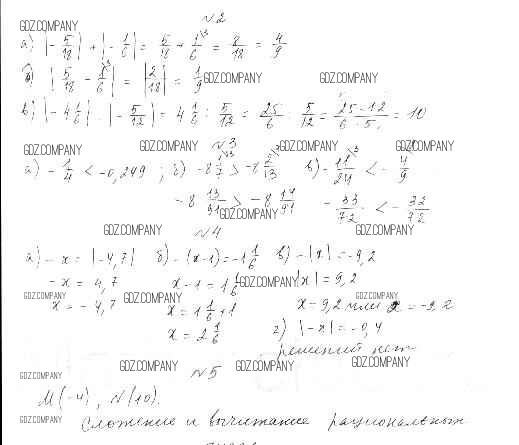 №2
GDZ.COMPANY
а) |-5/18| + |-1/6| = 5/18 + 1/6 = 8/18 = 4/9
б) |5/18 - 1/6| = |2/18| = 1/9 GDZ.COMPANY GDZ.COMPANY
в) |-4 1/6| : |-5/12| = 4 1/6 : 5/12 = 25/6 : 5/12 = 25·12/6·5 = 10
GDZ.COMPANY №3 GDZ.COMPANY GDZ.COMPANY
а) -1/4 < -0,249 ; б) -8 1/7 > -8 2/13 в) -11/24 < -4/9
-8 13/91 > -8 14/91 -33/72 < -32/72
GDZ.COMPANY
GDZ.COMPANY №4 GDZ.COMPANY
а) -x = |-4,7| б) -(x-1) = -1 1/6 в) -|x| = -9,2
-x = 4,7 x-1 = 1 1/6 |x| = 9,2
GDZ.COMPANY GDZ.COMPANY GDZ.COMPANY GDZ.COMPANY
x = -4,7 x = 1 1/6 + 1 x = 9,2 или x = -9,2
x = 2 1/6 г) |-x| = -0,4
решений нет
GDZ.COMPANY GDZ.COMPANY GDZ.COMPANY
№5
M(-4), N(10).
GDZ.COMPANY Сложение и вычитание рациональных